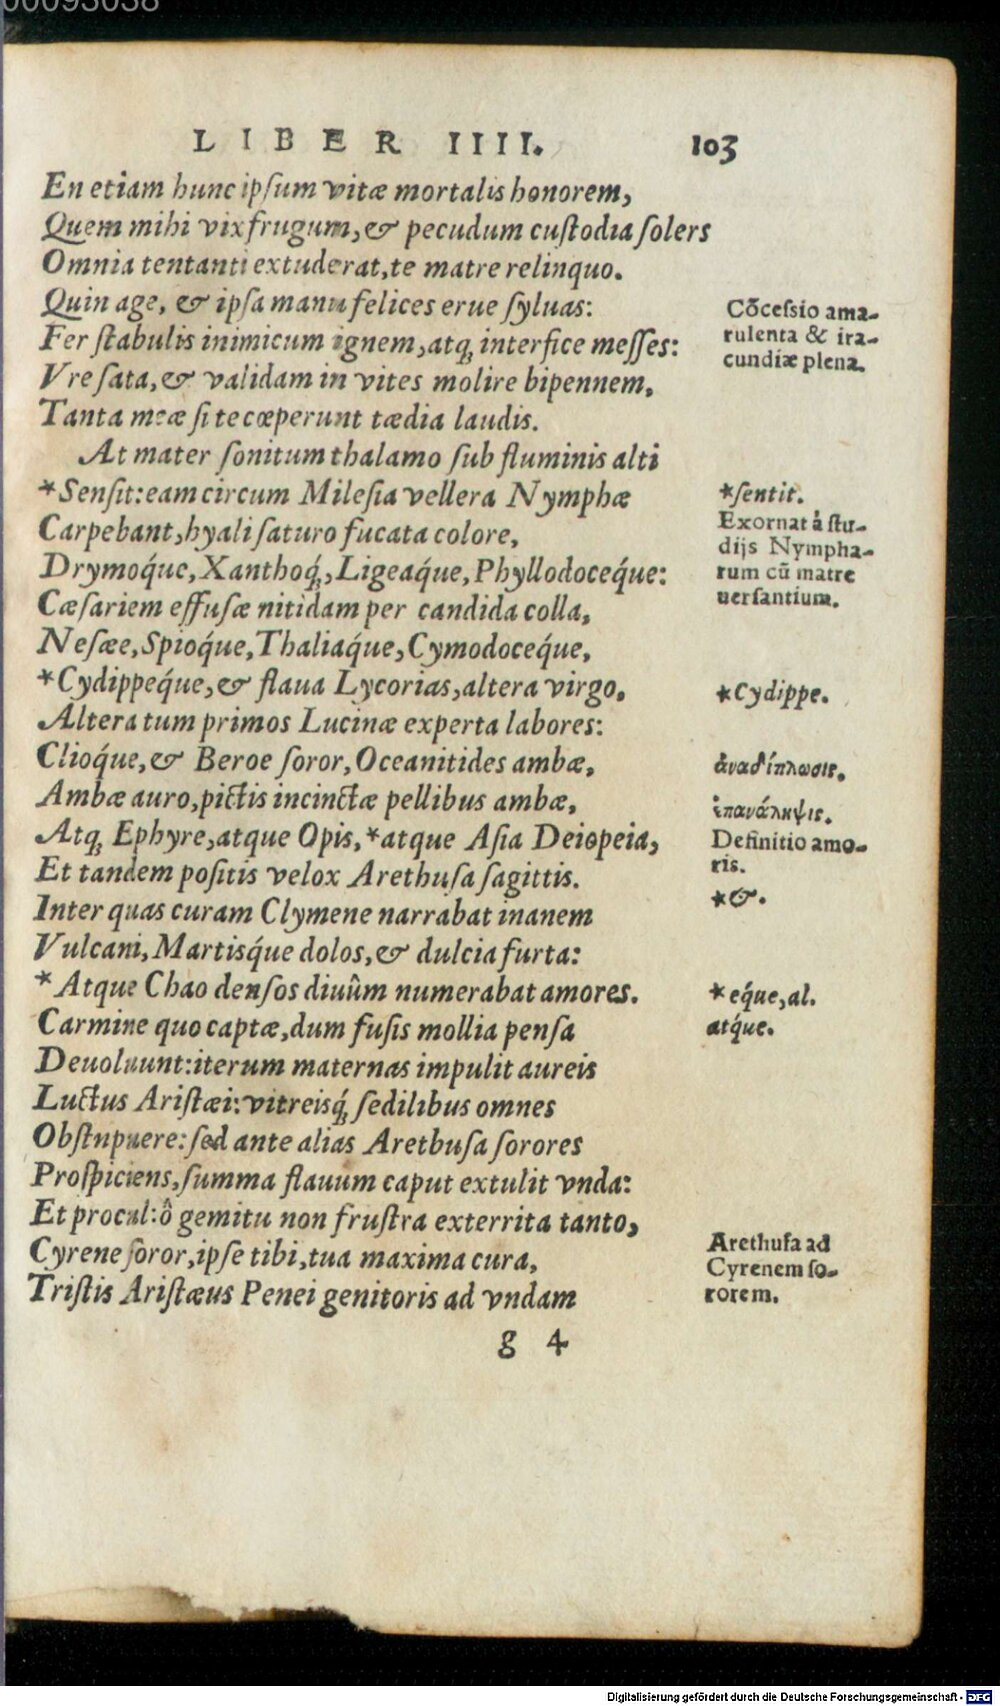 00093038
LIBER IIII. 103
En etiam hunc ipſum vitæ mortalis honorem,
Quem mihi vix frugum, & pecudum cuſtodia ſolers
Omnia tentanti extuderat, te matre relinquo.
Quin age, & ipſa manu felices erue ſyluas:
Fer ſtabulis inimicum ignem, atq; interfice meſſes:
Vre ſata, & validam in vites molire bipennem,
Tanta meæ ſi te cœperunt tædia laudis.
Cōceſsio ama-
rulenta & ira-
cundiæ plena.
At mater ſonitum thalamo ſub fluminis alti
*Senſit: eam circum Mileſia vellera Nymphæ
Carpebant, hyali ſaturo fucata colore,
Drymoq́ue, Xanthoq́;, Ligeaq́ue, Phyllodoceq́ue:
Cæſariem effuſæ nitidam per candida colla,
*ſentit.
Exornat à ſtu-
dijs Nympha-
rum cū matre
uerſantium.
Neſæe, Spioq́ue, Thaliaq́ue, Cymodoceq́ue,
*Cydippeq́ue, & flaua Lycorias, altera virgo,
*Cydippe.
Altera tum primos Lucinæ experta labores:
Clioq́ue, & Beroe ſoror, Oceanitides ambæ,
ἀναδίπλωσις.
Ambæ auro, pictis incinctæ pellibus ambæ,
ἐπανάληψις.
Atq; Ephyre, atque Opis, *atque Aſia Deiopeia,
Et tandem poſitis velox Arethuſa ſagittis.
Definitio amo-
ris.
*&.
Inter quas curam Clymene narrabat inanem
Vulcani, Martisq́ue dolos, & dulcia furta:
*Atque Chao denſos diuûm numerabat amores.
Carmine quo captæ, dum fuſis mollia penſa
*eq́ue, al.
atq́ue.
Deuoluunt: iterum maternas impulit aureis
Luctus Ariſtæi: vitreisq́; ſedilibus omnes
Obſtupuere: ſed ante alias Arethuſa ſorores
Proſpiciens, ſumma flauum caput extulit vnda:
Et procul: ô gemitu non fruſtra exterrita tanto,
Cyrene ſoror, ipſe tibi, tua maxima cura,
Triſtis Ariſtæus Penei genitoris ad vndam
Arethuſa ad
Cyrenem ſo-
rorem.
g 4
Digitalisierung gefördert durch die Deutsche Forschungsgemeinschaft - DFG